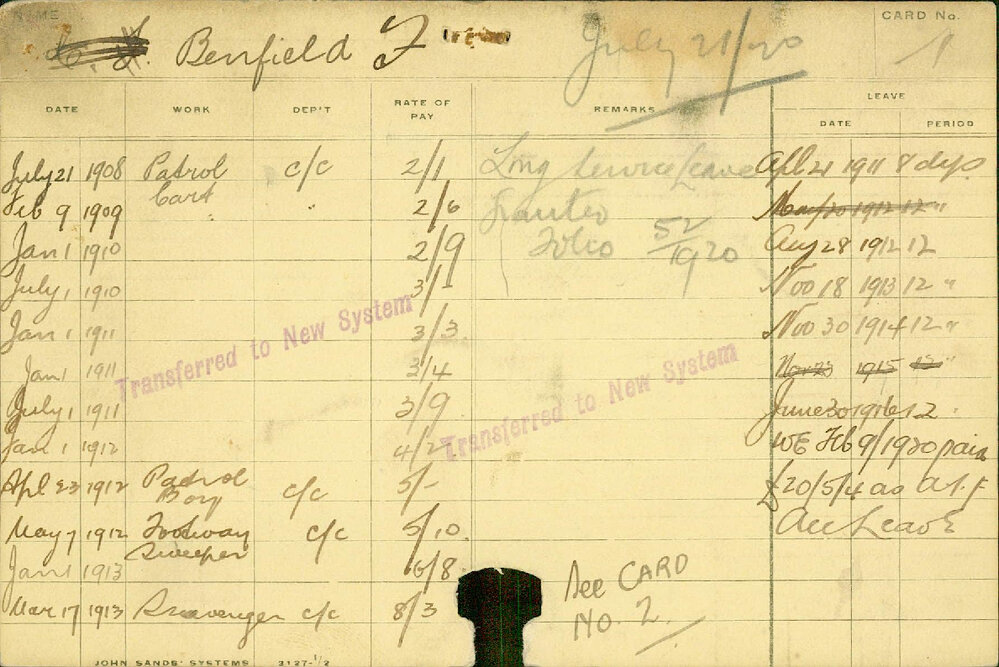 NAME
CARD No.
Benfield F
July 21/20
1
DATE WORK DEP'T RATE OF PAY REMARKS LEAVE
DATE PERIOD
July 21 1908 Patrol c/c 2/1 Long Service Leave Apl 21 1911 8 days
Feb 9 1909 Cart " 2/6 Granted
Jan 1 1910 2/9 Folio 52/1920 Aug 28 1912 12
July 1 1910 3/1 Nov 18 1913 12 "
Jan 1 1911 3/3 Nov 30 1914 12 "
Jan 1 1911 3/4
July 1 1911 3/9 June 30 1916 12 "
Jan 1 1912 4/2 WE Feb 9/1920 paid
Apl 23 1912 Patrol Boy c/c 5/- £20/5/4 as
May 7 1912 Footway Sweeper c/c 5/10 Acc Leave
Jan 1 1913 6/8
Mar 17 1913 Scavenger c/c 8/3
Transferred to New System
Transferred to New System
See CARD
No. 2
JOHN SANDS' SYSTEMS 2127-1/2